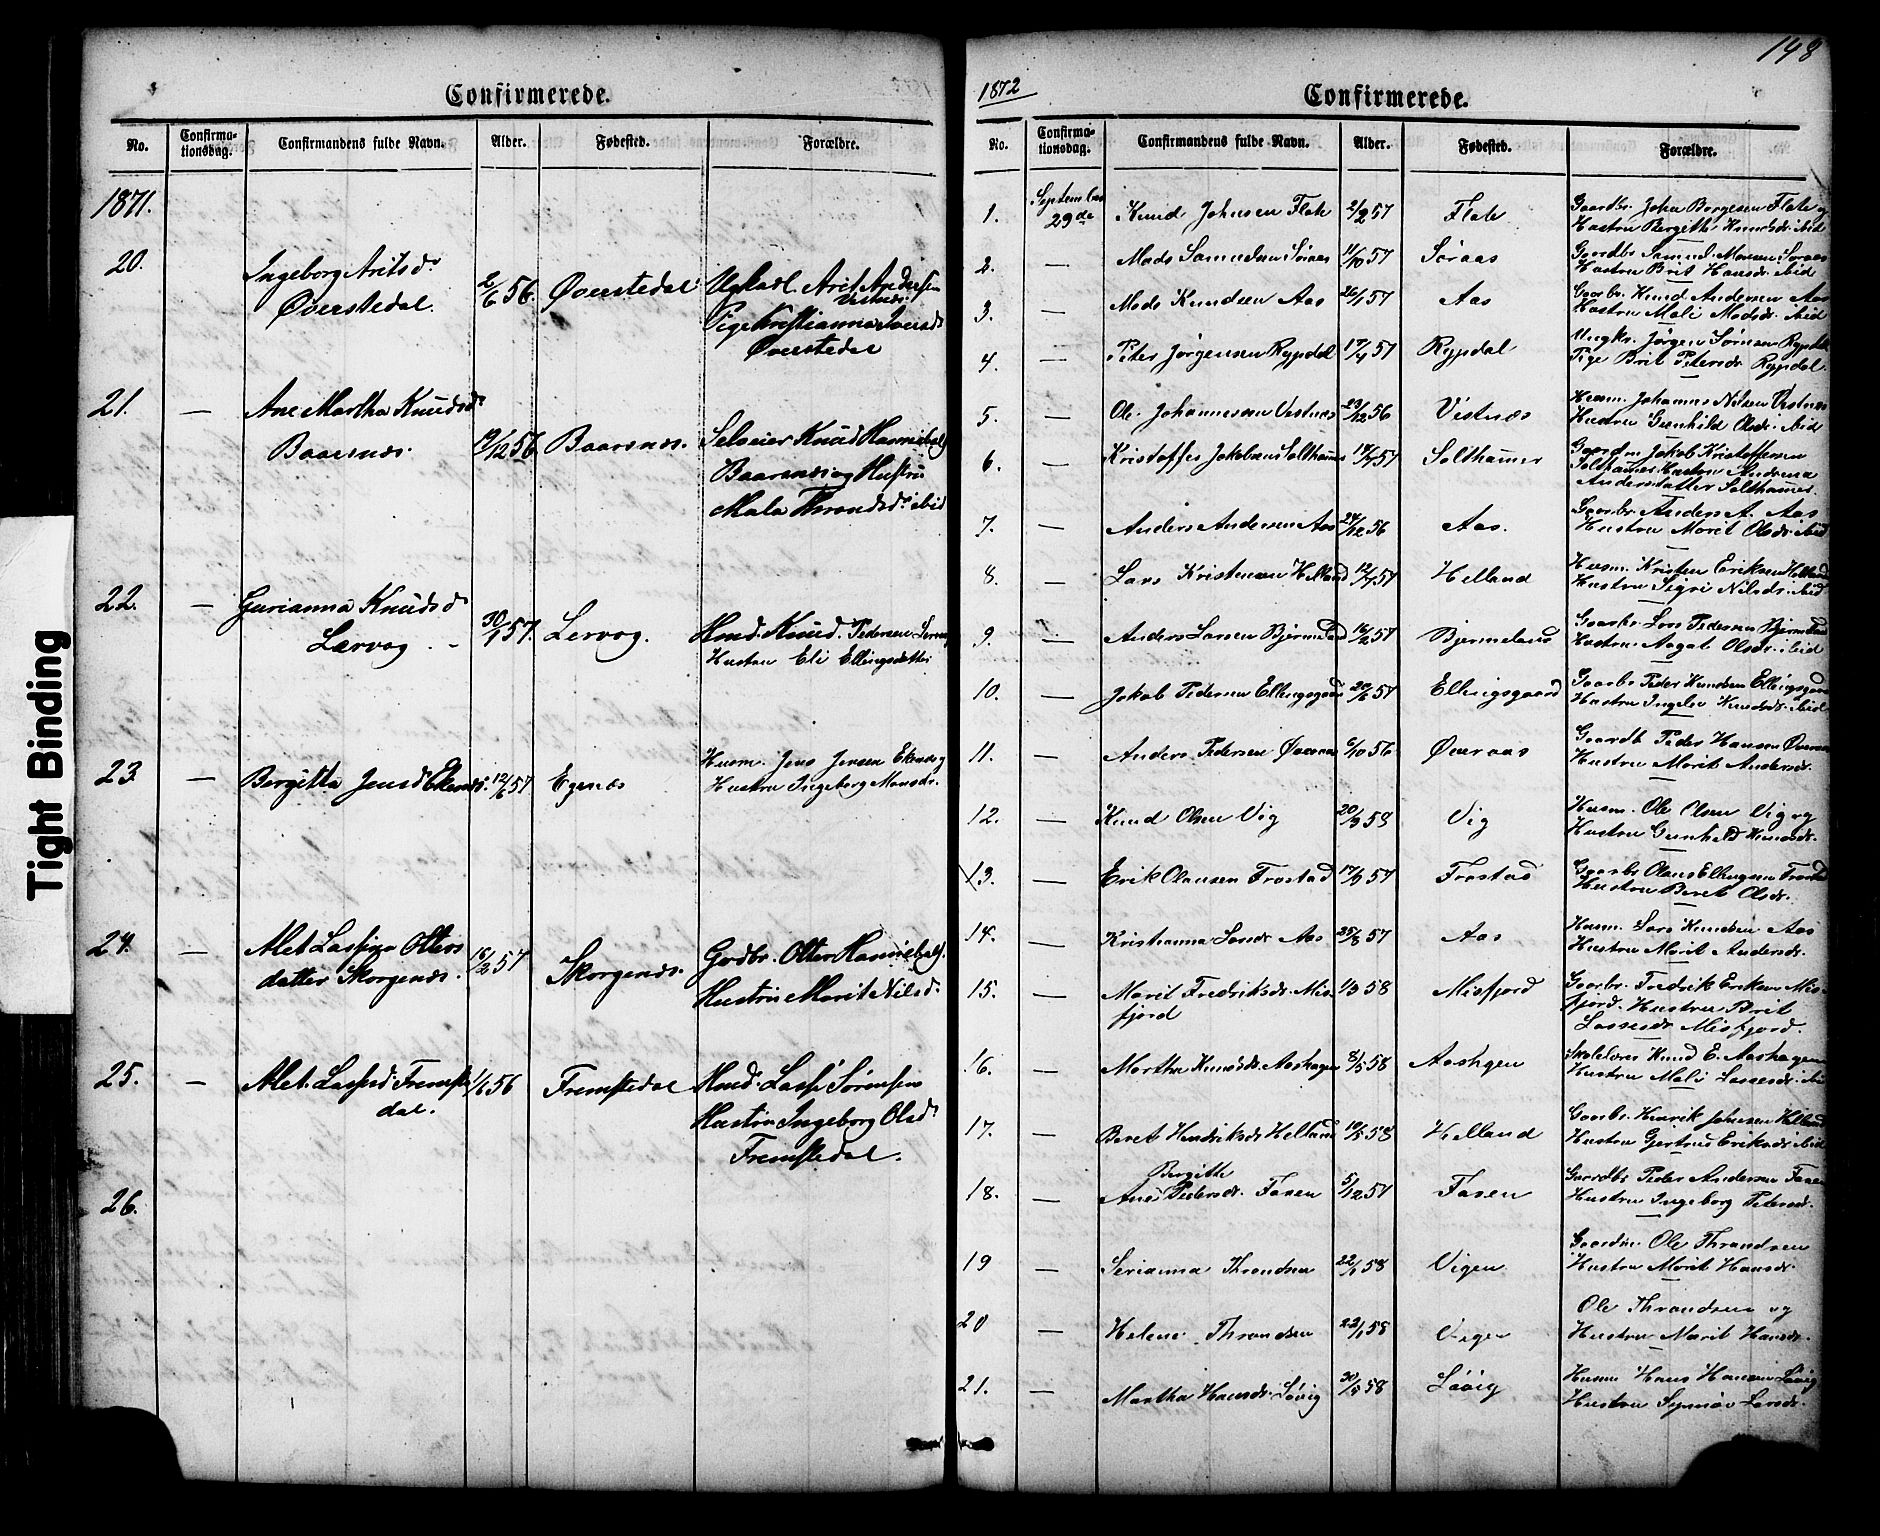 Confirmerede.
No. Confirma-tionsdag. Confirmandens fulde Navn. Alder. Fødested. Forældre.
1871.
20. Ingeborg Arilsd. 2/6 56. Øverstedal Ungkarl Arit Andersen
Øverstedal. Vestnæs
Pige Kristianna Iversd.
Øverstedal
21. — Ane Martha Knudsd.
Baarsnæs. 19/12 56 Baarsnæs. Selveier Knud Hannibals.
Baarsnæs og Hustru
Mala Throndsd. ibid
22. — Gurianna Knudsd.
Lervog 30/1 57. Lervog. Hmd. Knud Pedersen Lervog
Hustru Eli Ellingsdatter
23 — Bergitta Jensd. Ekenæs. 12/6 57 Egenæs Husm. Jens Jensen Ekenæs og
Hustru Ingeborg Monsdr.
24. — Alet Lassine Otters
datter Skorgenæs. 16/2 57 Skorgenæs. Grdbr. Otter Hannibals.
Hustru Marit Nilsd.
25. — Alet Lassesd. Fremste
dal. 1/6 56 Fremstedal Hmd. Lasse Sørensen
Hustru Ingeborg Olsd.
Fremstedal.
26.
148
1872
Confirmerede.
No. Confirma-tionsdag. Confirmandens fulde Navn. Alder. Fødested. Forældre.
1. September 29de Knud Johnsen Flate 2/2 57 Flate Gaardbr. John Borgesen Flate og
Hustru Bergithe Knudsdr. ibid
2. — Mads Samuelsen Søraas 11/10 57 Søraas Gaardbr. Samuel Monsen Søraas
Hustru Brit Hansdr. ibid
3. — Mads Knudsen Aas 26/1 57 Aas Gaarbr. Knud Andersen Aas
Hustru Mali Madsdr. ibid
4. — Peter Jørgensen Rypdal 17/4 57 Rypdal Ungkr. Jørgen Sørnsen Rypdal
Pige Brit Petersdr. Rypdal.
5. — Ole Johannesen Vestnæs 23/12 56 Vestnæs Husm. Johannes Nilsen Vestnæs
Hustru Gunhild Olsdr. ibid
6. — Kristoffer Jakobsen Salthamer 17/4 57 Salthamer Gaardm Jakob Kristoffersen
Salthamer Hustru Andrina
Andersdatter Salthamer.
7. — Anders Andersen Aas 24/12 56 Aas. Gaarbr. Anders A. Aas
Hustru Marit Olsdr. ibid
8. — Lars Kristensen Helland 12/4 57 Helland Husm. Kristen Eriksen Helland
Hustru Sigri Nilsdr. ibid
9. — Anders Larsen Bjermeland 16/2 57 Bjermeland Gaarbr. Lars Pedersen Bjermeland
Hustru Aagot Olsdr. ibid
10. — Jakob Pedersen Ellingsgaard 20/6 57 Ellingsgaard Gaarbr. Peder Knudsen Ellingsgaard
Hustru Ingelev Knudsdr. ibid
11. — Anders Pedersen Øveraas 6/10 56 Øveraas Gaardb. Peder Hansen Øveraas
Hustru Marit Andersdr.
12. — Knud Olsen Vig 20/3 58 Vig Husm. Ole Olsen Vig og
Hustru Gunhild Knudsdr.
13. — Erik Olausen Frostad 17/3 57 Frostad Gaarbr. Olaus Ellingsen Frostad
Hustru Beret Olsdr.
14. — Kristianna Larsdr. Aas 25/8 57 Aas Husm. Lars Knudsen Aas
Hustru Marit Andersdr.
15. — Marit Fredriksdr. Mis-
fjord 1/3 58 Misfjord Gaarbr. Fredrik Eriksen Mis-
fjord. Hustru Brit
Lassesdr. Misfjord.
16. — Martha Knudsdr. Aashagen 8/5 58 Aashgen Skolelærer Knud E. Aashagen
Hustru Mali Lassesdr. ibid
17. — Beret Hendriksdr. Helland 10/5 58 Helland Gaarbr. Henrik Johnsen Helland
Hustru Gjertrud Eriksdr. ibid
18. — Ane Bergitte Pedersdr. Fasen 5/12 57 Fasen Gaardbr. Peder Andersen Fasen
Hustru Ingeborg Petersdr.
19 — Serianna Throndsen 22/1 58 Vigen Gaardm. Ole Throndsen
Hustru Marit Hansdr.
20 — Helene Throndsen 22/1 58 Vigen Ole Throndsen og
Hustru Marit Hansdr.
21. — Martha Hansdr. Søvig 30/5 58 Søvig Husm Hans Hansen Søvig
Hustru Synnøv Larsdr.
Tight Binding